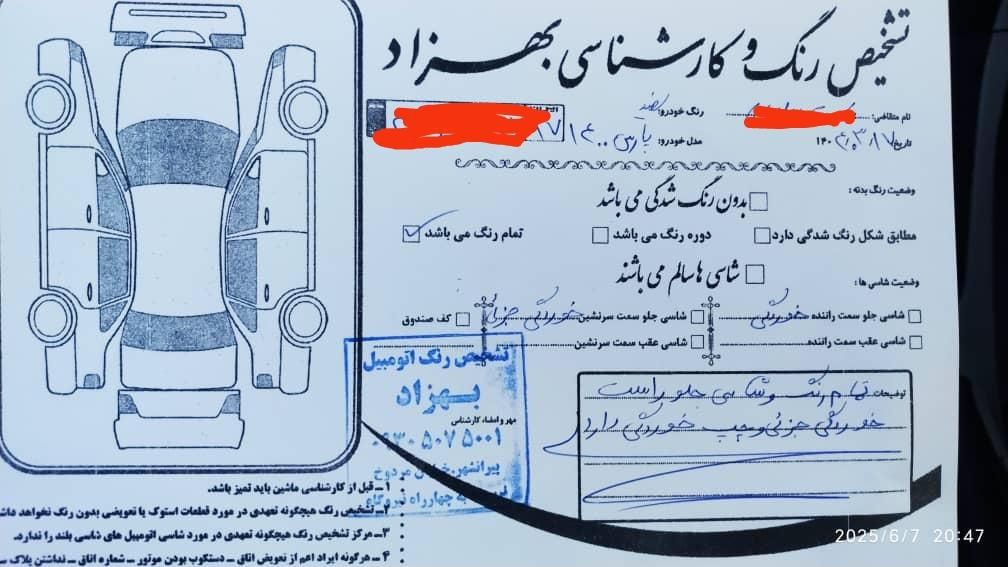 تشخیص رنگ و کارشناسی بهزاد
نام متقاضی:
رنگ خودرو: سفید
تاریخ ۱۴۰۴/۰۳/۱۷
مدل خودرو: پارس ۱۴۰۰
وضعیت رنگ بدنه:
بدون رنگ شدگی می باشد
مطابق شکل رنگ شدگی دارد
دوره رنگ می باشد
تمام رنگ می باشد
وضعیت شاسی ها:
شاسی ها سالم می باشند
شاسی جلو سمت راننده خوردگی
شاسی جلو سمت سرنشین خوردگی جزئی
کف صندوق
شاسی عقب سمت راننده
شاسی عقب سمت سرنشین
توضیحات: تمام رنگ و شاسی جلو راست
خوردگی جزئی و چپ خوردگی دارد
تشخیص رنگ اتومبیل
بهزاد
مهر و امضاء کارشناسی
۵۰۷ ۵۰۰۱
پیرانشهر خیابان مردوخ
به چهارراه نیروگاه
۱ــ قبل از کارشناسی ماشین باید تمیز باشد.
۲ــ تشخیص رنگ هیچگونه تعهدی در مورد قطعات استوک یا تعویضی بدون رنگ نخواهد داشت
۳ــ مرکز تشخیص رنگ هیچگونه تعهدی در مورد شاسی اتومبیل های شاسی بلند را ندارد.
۴ــ هرگونه ایراد اعم از تعویض اتاق ــ دستکوب بودن موتور ــ شماره اتاق ــ نداشتن پلاک
2025/6/7 20:47